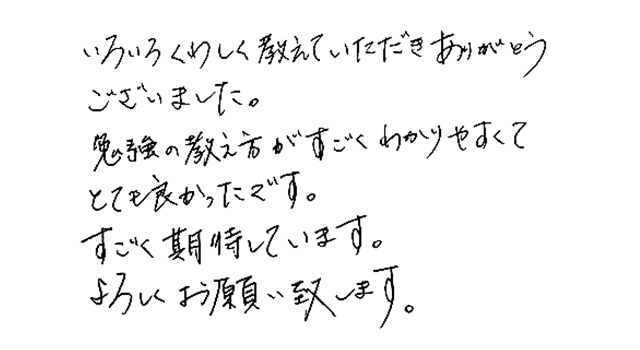 いろいろくわしく教えていただきありがとう
ございました。
勉強の教え方がすごくわかりやすくて
とても良かったです。
すごく期待しています。
よろしくお願い致します。